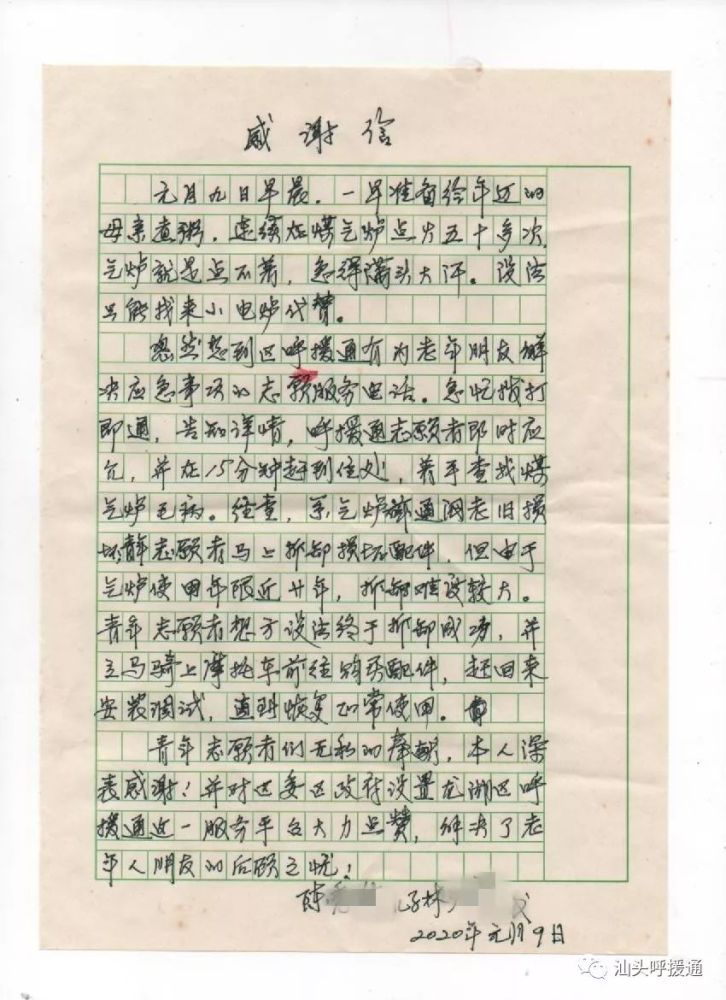 感谢信
元月九日早晨，一早准备给年迈的
母亲煮粥，连续在煤气炉点火五十多次，
气炉就是点不着，急得满头大汗。没法
只能找来小电炉代替。
忽然想到区呼援通有为老年朋友解
决应急事项的志愿服务电话。急忙拨打
即通，告知详情，呼援通志愿者即时应
允，并在15分钟赶到住处，着手查找煤
气炉毛病。经查，系气炉通阀老旧损
坏青年志愿者马上拆卸损坏配件，但由于
气炉使用年限近廿年，拆卸难度较大。
青年志愿者想方设法终于拆卸成功，并
立马骑上摩托车前往购买配件，赶回来
安装调试，直到恢复正常使用。
青年志愿者们无私的奉献，本人深
表感谢！并对区委区政府设置龙湖区呼
援通这一服务平台大力点赞，解决了老
年人朋友的后顾之忧！
陈 儿子林
2020年元月9日
汕头呼援通